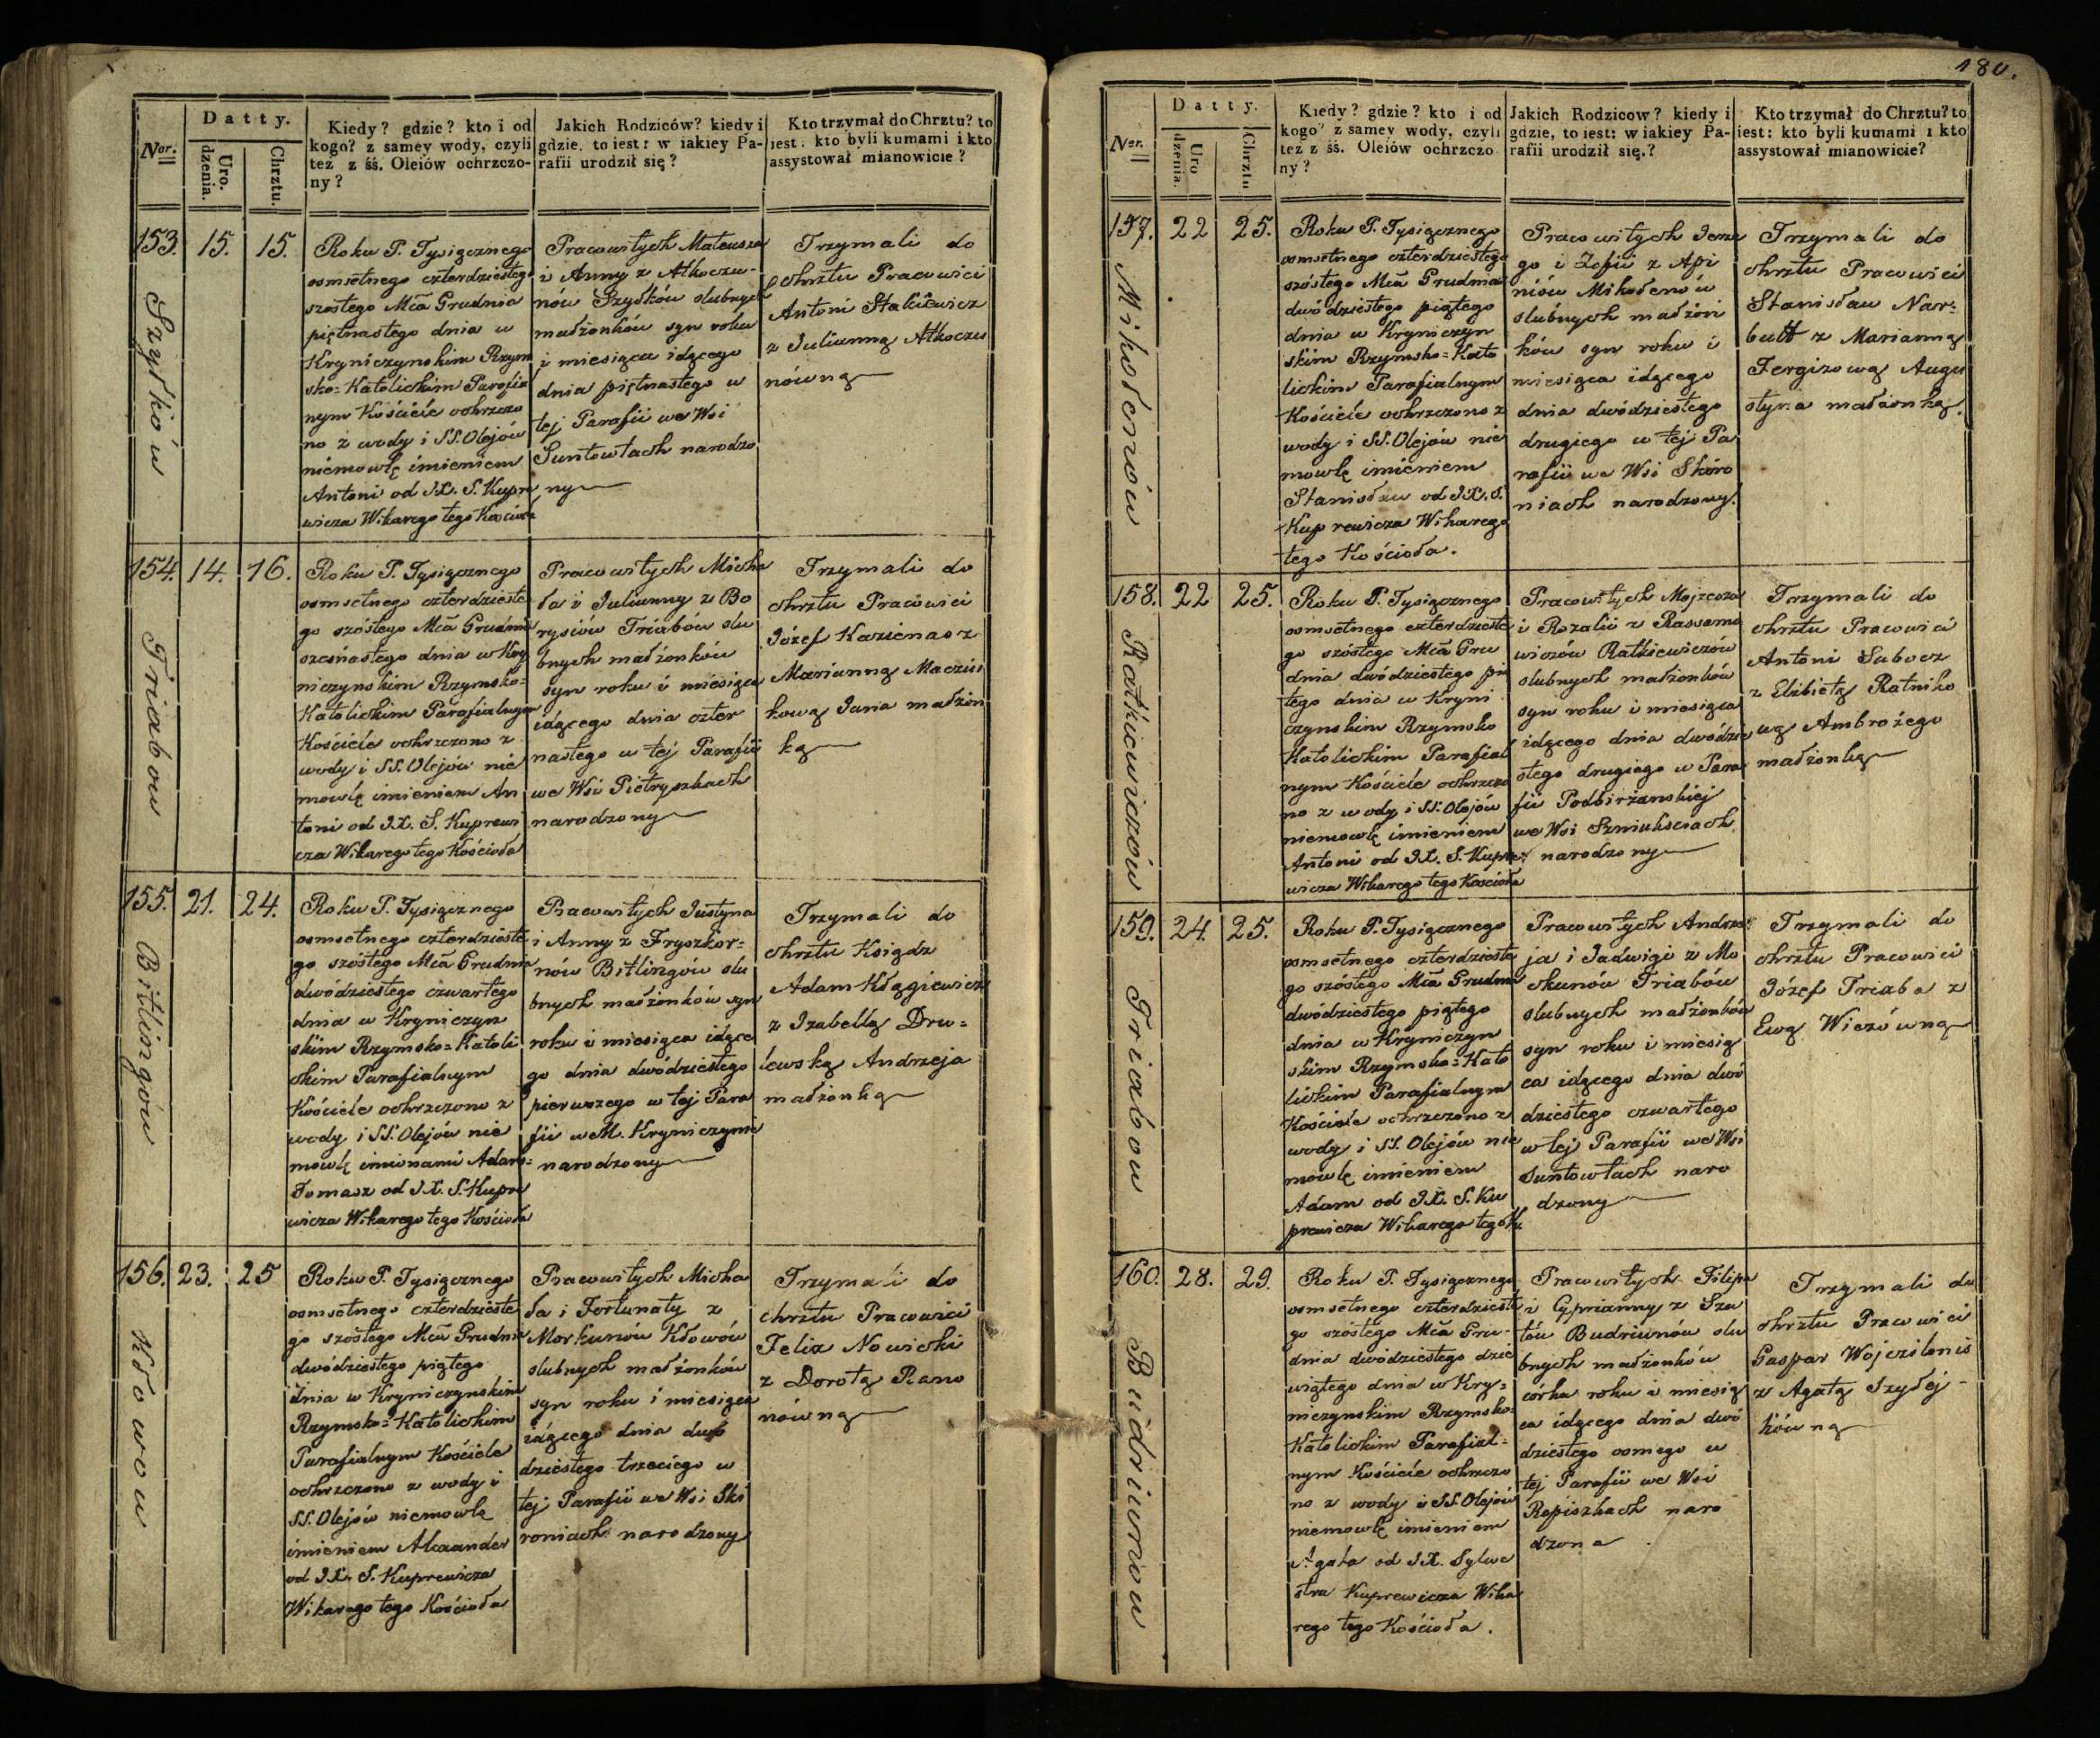 Ner.
Datty.
Uro.
dzenia.
Chrztu.
Kiedy? gdzie? kto i od
kogo? z samey wody, czyli
też z śś. Oleiów ochrzczo-
ny?
Jakich Rodziców? kiedy i
gdzie, to iest: w iakiey Pa-
rafii urodził się?
Kto trzymał do Chrztu? to
iest: kto byli kumami i kto
assystował mianowicie?
153. 15. 15.
Szyłków
Roku P. Tysiącznego
osmsetnego czterdziestego
szóstego Mca Grudnia
piętnastego dnia w
Kryniczynskim Rzym
sko=Katolickim Parafial
nym Kościele ochrzczo
no z wody i SS. Olejów
niemowlę imieniem
Antoni od JX. S. Kupre
wicza Wikarego tego Kościoła
Pracowitych Mateusza
i Anny z Atkoczu-
nów Szyłków slubnych
małżonków syn roku
i miesiąca idącego
dnia piętnastego w
tej Parafii we Wsi
Suntowtach narodzo
ny
Trzymali do
chrztu Pracowici
Antoni Stakiewicz
z Julianną Atkoczu
nówną
154. 14. 16.
Triabow
Roku P. Tysiącznego
osmsetnego czterdzieste
go szóstego Mca Grudnia
szesnastego dnia w Kry
niczynskim Rzymsko=
Katolickim Parafialnym
Kościele ochrzczono z
wody i SS. Olejów nie
mowlę imieniem An
toni od JX. S. Kuprewi
cza Wikarego tego Kościoła
Pracowitych Micha
ła i Julianny z Bo
rysiów Triabów slu
bnych małżonków
syn roku i miesiąca
idącego dnia czter
nastego w tej Parafii
we Wsi Pietryszkach
narodzony
Trzymali do
chrztu Pracowici
Józef Kazienas z
Marianną Maciu
kową Jana małżon
ką
155. 21. 24.
Bitlingów
Roku P. Tysiącznego
osmsetnego czterdzieste
go szóstego Mca Grudnia
dwódziestego czwartego
dnia w Kryniczyn
skim Rzymsko=Katoli
ckim Parafialnym
Kościele ochrzczono z
wody i SS. Olejów nie
mowlę imionami Adam=
Tomasz od JX. S. Kupre
wicza Wikarego tego Kościoła
Pracowitych Justyna
i Anny z Fryszkor=
nów Bitlingów slu
bnych małżonków syn
roku i miesiąca idące
go dnia dwodziestego
pierwszego w tej Para
fii w M. Kryniczynie
narodzony
Trzymali do
chrztu Ksiądz
Adam Kłągiewicz
z Izabellą Dru=
lewską Andrzeja
małżonką
156. 23. 25
Kłowow
Roku P. Tysiącznego
osmsetnego czterdzieste
go szóstego Mca Grudnia
dwódziestego piątego
dnia w Kryniczynskim
Rzymsko=Katolickim
Parafialnym Kościele
ochrzczono z wody i
SS. Olejów niemowlę
imieniem Alexander
od JX. S. Kuprewicza
Wikarego tego Kościoła
Pracowitych Micha
ła i Fortunaty z
Morkunów Kłowów
slubnych małżonków
syn roku i miesiąca
idącego dnia dwó
dziestego trzeciego w
tej Parafii we Wsi Skó
roniach narodzony
Trzymali do
chrztu Pracowici
Felix Nowicki
z Dorotą Rano
nówną
180.
Ner.
Datty.
Uro
dzenia.
Chrztu
Kiedy? gdzie? kto i od
kogo? z samey wody, czyli
też z śś. Oleiów ochrzczo
ny?
Jakich Rodzicow? kiedy i
gdzie, to iest: w iakiey Pa-
rafii urodził się.?
Kto trzymał do Chrztu? to
iest: kto byli kumami i kto
assystował mianowicie?
157. 22 25.
Mikołenów
Roku P. Tysiącznego
osmsetnego czterdziestego
szóstego Mca Grudnia
dwódziestego piątego
dnia w Kryniczyn
skim Rzymsko=Kato
lickim Parafialnym
Kościele ochrzczono z
wody i SS. Olejów nie
mowlę imieniem
Stanisław od JX. S.
Kuprewicza Wikarego
tego Kościoła.
Pracowitych Jerze
go i Zofii z Api
niów Mikołenów
slubnych małżon
ków syn roku i
miesiąca idącego
dnia dwódziestego
drugiego w tej Pa
rafii we Wsi Skóro
niach narodzony.
Trzymali do
chrztu Pracowici
Stanisław Nar=
butt z Marianną
Fergizową Augu
styna małżonką.
158. 22 25.
Ratkiewiczów
Roku P. Tysiącznego
osmsetnego czterdzieste
go szóstego Mca Gru
dnia dwódziestego pią
tego dnia w Kryni
czynskim Rzymsko
Katolickim Parafial
nym Kościele ochrzczo
no z wody i SS. Olejów
niemowlę imieniem
Antoni od JX. S. Kupre
wicza Wikarego tego Kościoła
Pracowitych Mojżesza
i Rozalii z Rassomo
wiczów Ratkiewiczów
slubnych małżonków
syn roku i miesiąca
idącego dnia dwódzie
stego drugiego w Para
fii Podbirżanskiej
we Wsi Szniuksciach
narodzony
Trzymali do
chrztu Pracowici
Antoni Subocz
z Elżbietą Ratniko
wą Ambrożego
małżonką
159. 24. 25.
Triabow
Roku P. Tysiącznego
osmsetnego czterdzieste
go szóstego Mca Grudnia
dwódziestego piątego
dnia w Kryniczyn
skim Rzymsko=Kato
lickim Parafialnym
Kościele ochrzczono z
wody i SS. Olejów nie
mowlę imieniem
Adam od JX. S. Ku
prewicza Wikarego tego K.
Pracowitych Andrze
ja i Jadwigi z Mo
ckunów Triabów
slubnych małżonków
syn roku i miesią
ca idącego dnia dwó
dziestego czwartego
w tej Parafii we Wsi
Suntowtach naro
dzony
Trzymali do
chrztu Pracowici
Józef Triaba z
Ewą Wiczówną
160. 28. 29.
Budriunow
Roku P. Tysiącznego
osmsetnego czterdzieste
go szóstego Mca Gru-
dnia dwódziestego dzie
wiątego dnia w Kry=
niczynskim Rzymsko=
Katolickim Parafial=
nym Kościele ochrzczo
no z wody i SS. Olejów
niemowlę imieniem
Agata od JX. Sylwe
stra Kuprewicza Wika
rego tego Kościoła.
Pracowitych Filipa
i Cyprianny z Sza
tów Budriunów slu
bnych małżonków
córka roku i miesią
ca idącego dnia dwó
dziestego osmego w
tej Parafii we Wsi
Ropiszkach naro
dzona
Trzymali do
chrztu Pracowici
Gaspar Wojczilonis
z Agatą Szyłej-
kówną